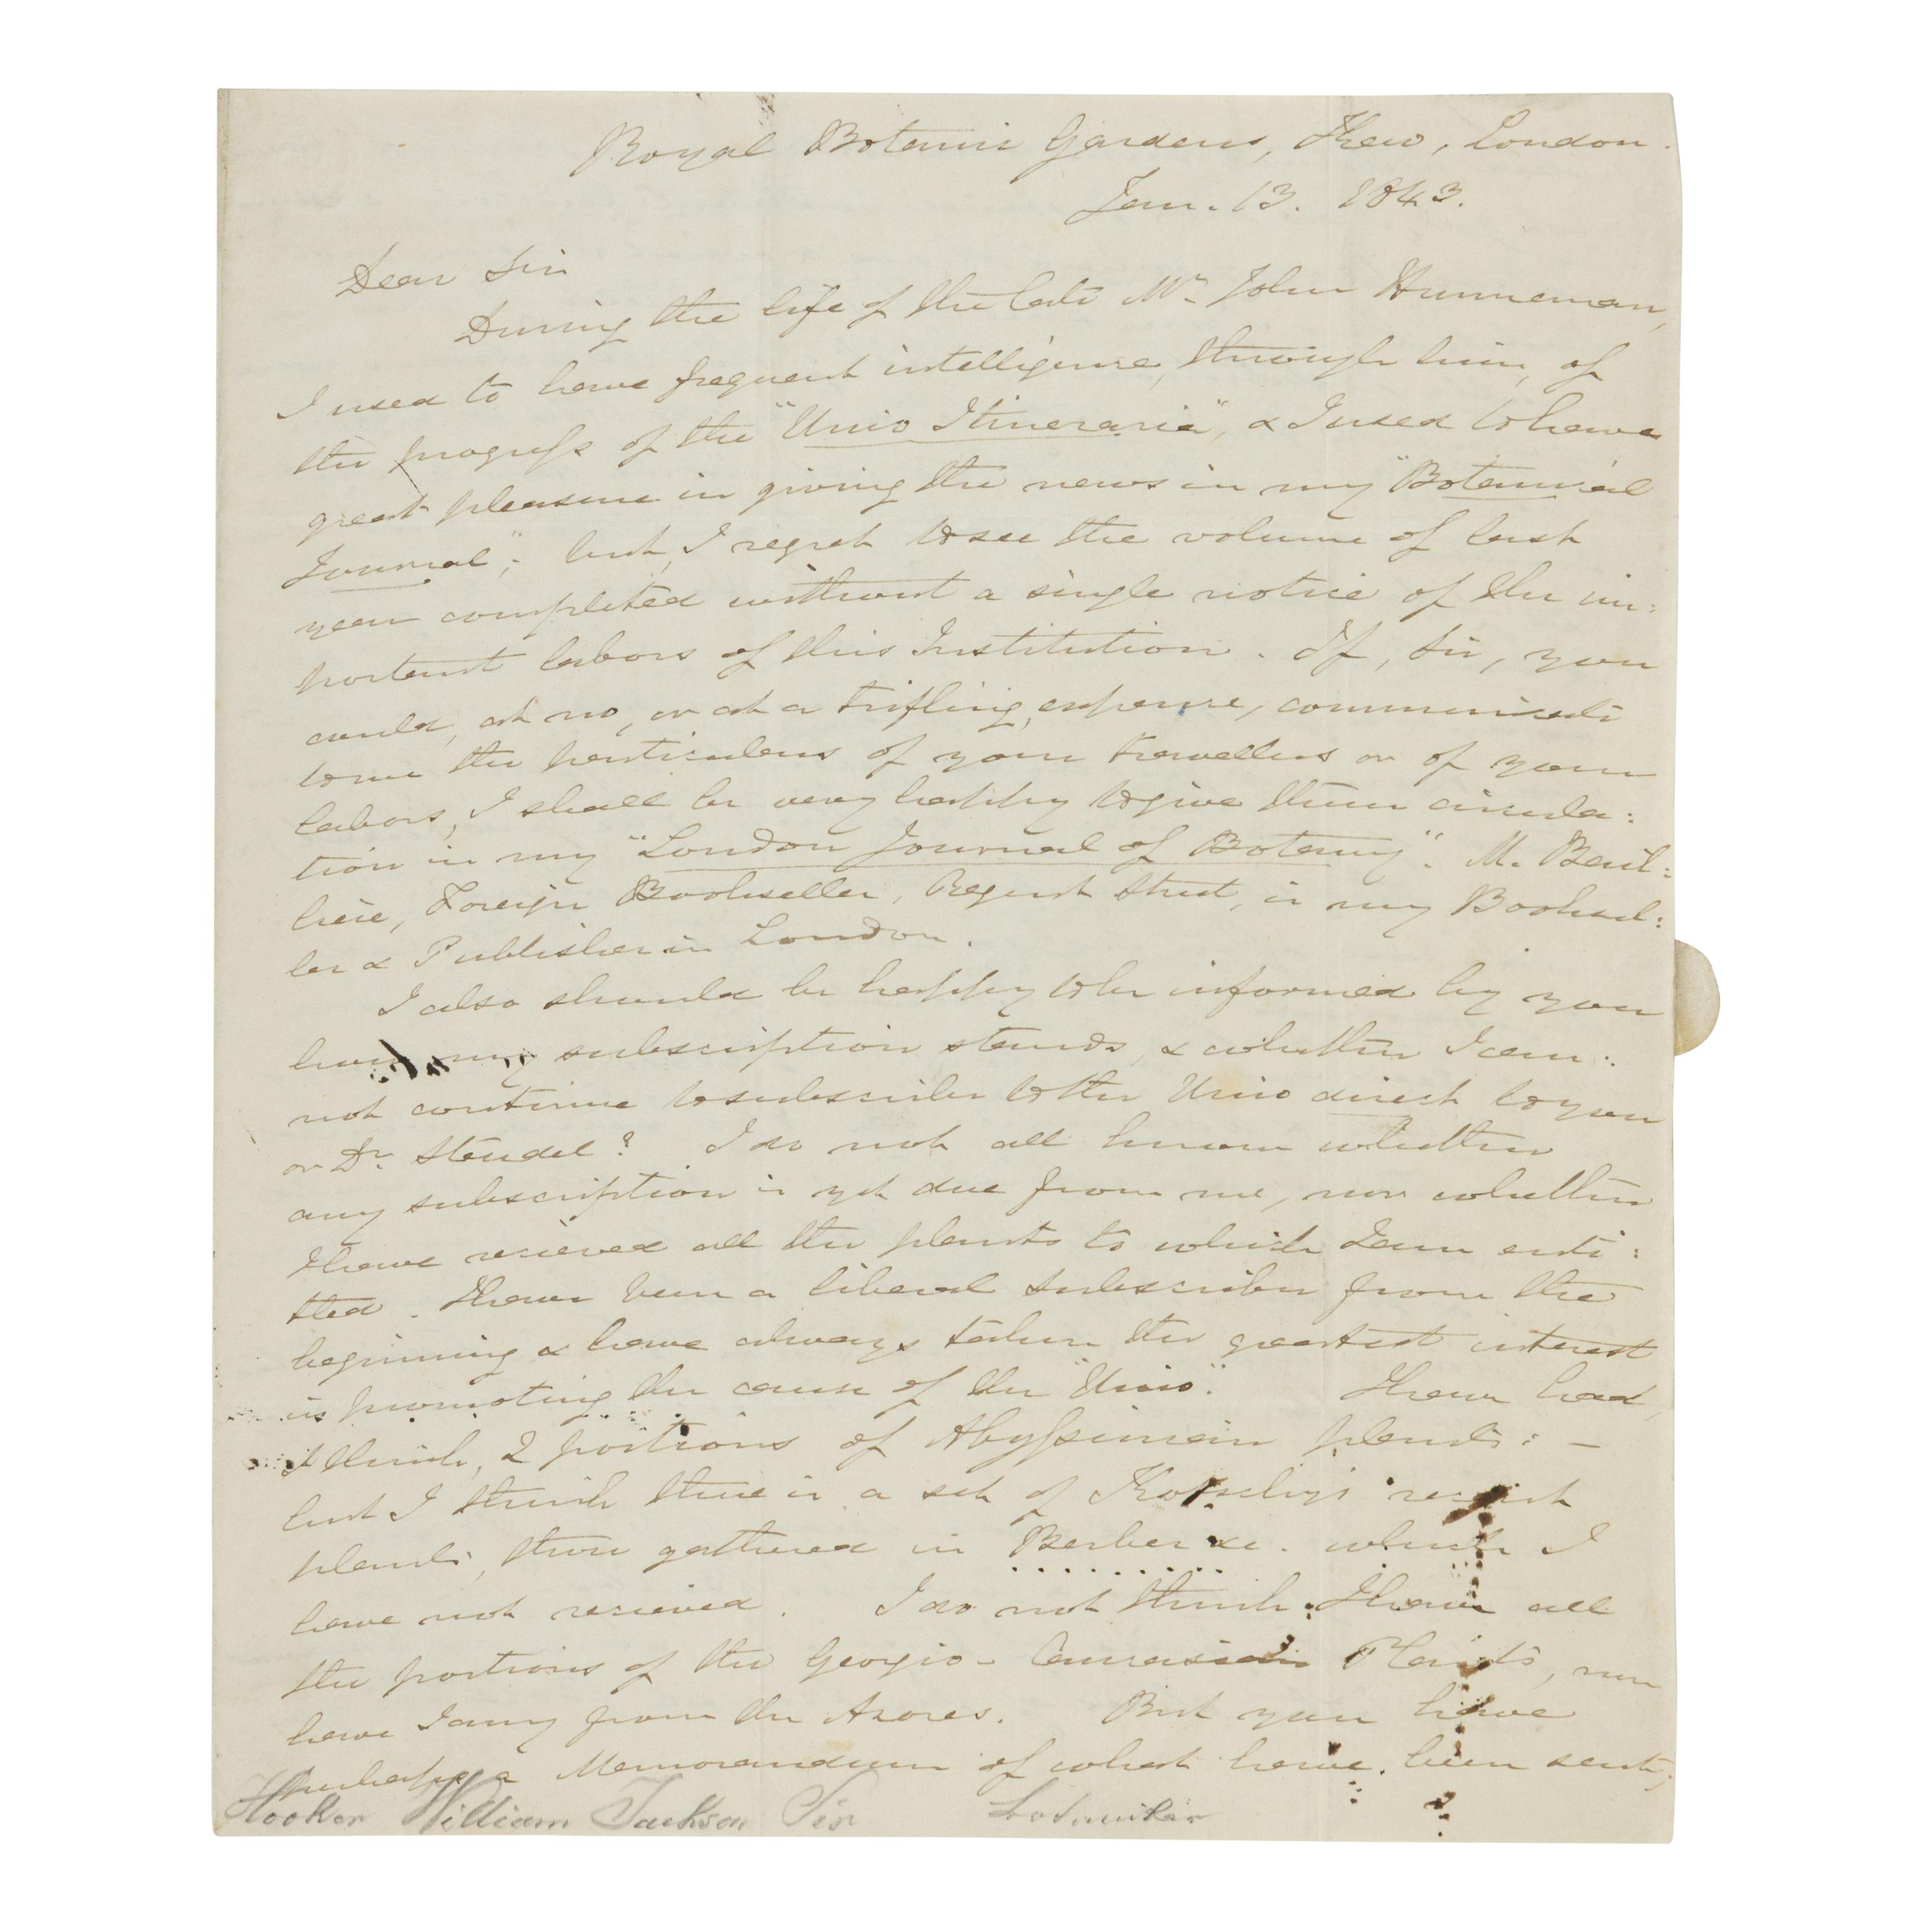 Royal Botanic Gardens, Kew, London.
Jan. 13. 1843.
Dear Sir
During the life of the late Mr. John Hunneman,
I used to have frequent intelligence, through him, of
the progress of the "Unio Itineraria", & I used to have
great pleasure in giving the news in my "Botanical
Journal"; but, I regret to see the volume of last
year completed without a single notice of the im:
portant labors of this Institution. If, Sir, you
could, at no, or at a trifling, expense, communicate
to me the particulars of your travellers or of your
labors, I shall be very happy to give them circula:
tion in my "London Journal of Botany". M. Bail:
liere, Foreign Bookseller, Regent Street, is my Booksel:
ler & Publisher in London.
I also should be happy to be informed by you
how my subscription stands, & whether I can:
not continue to subscribe to the Unio direct to you
or Dr. Steudel? I do not all know whether
any subscription is yet due from me, nor whether
I have recieved all the plants to which I am enti:
tled. I have been a liberal subscriber from the
beginning & have always taken the greatest interest
in promoting the cause of the "Unio". I have had,
I think, 2 portions of Abyssinian plants: —
but I think there is a set of Kotschy's recent
plants, those gathered in Berber &c. which I
have not recieved. I do not think I have all
the portions of the Georgio-Caucasian Plants, nor
have I any from the Azores. But you have
perhaps a Memorandum of what have been sent;
Hooker William Jackson Sir Botaniker